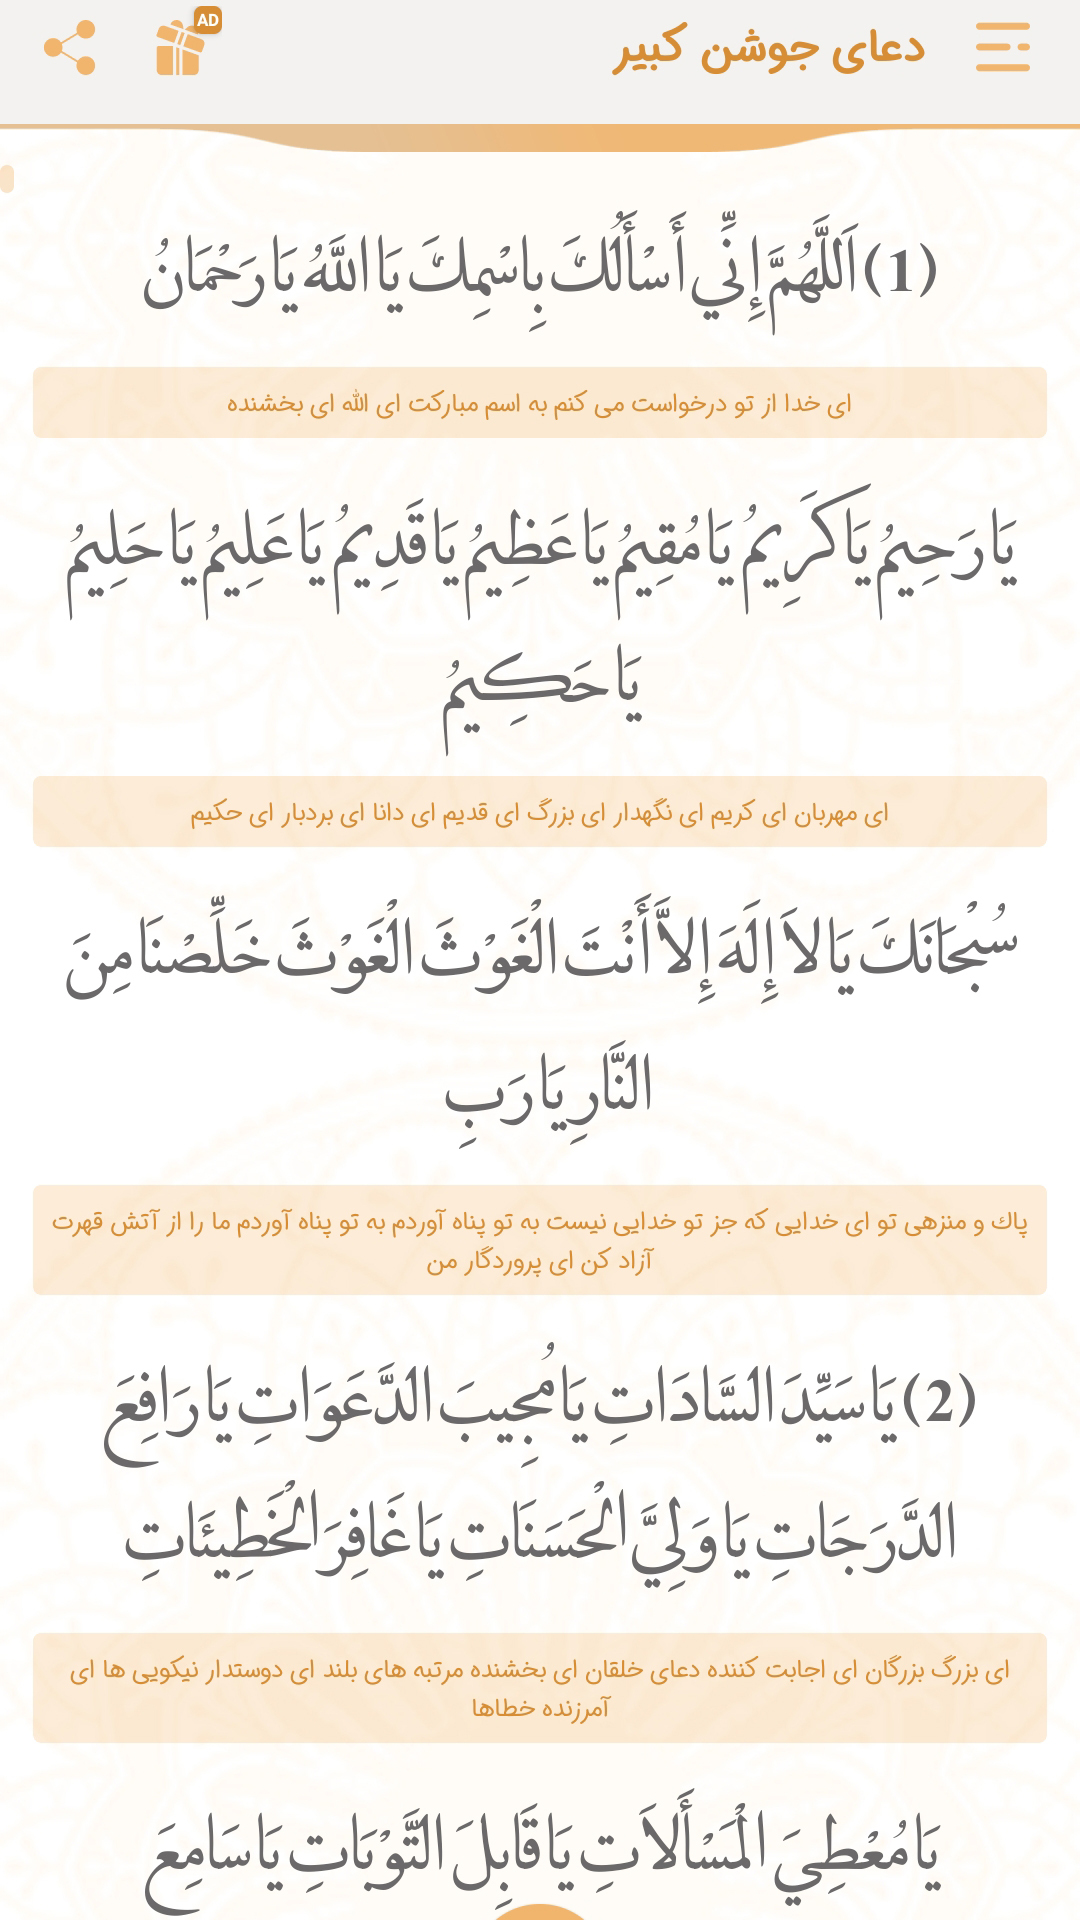 دعای جوشن کبیر
AD
(1) اَللَّهُمَّ إِنِّي أَسْأَلُكَ بِاسْمِكَ يَا اللَّهُ يَا رَحْمَانُ
ای خدا از تو درخواست می کنم به اسم مبارکت ای الله ای بخشنده
يَا رَحِيمُ يَا كَرِيمُ يَا مُقِيمُ يَا عَظِيمُ يَا قَدِيمُ يَا عَلِيمُ يَا حَلِيمُ
يَا حَكِيمُ
ای مهربان ای کریم ای نگهدار ای بزرگ ای قدیم ای دانا ای بردبار ای حکیم
سُبْحَانَكَ يَا لاَ إِلَهَ إِلاَّ أَنْتَ الْغَوْثَ الْغَوْثَ خَلِّصْنَا مِنَ
النَّارِ يَا رَبِ
پاك و منزهی تو ای خدایی که جز تو خدایی نیست به تو پناه آوردم به تو پناه آوردم ما را از آتش قهرت
آزاد کن ای پروردگار من
(2) يَا سَيِّدَ السَّادَاتِ يَا مُجِيبَ الدَّعَوَاتِ يَا رَافِعَ
الدَّرَجَاتِ يَا وَلِيَّ الْحَسَنَاتِ يَا غَافِرَ الْخَطِيئَاتِ
ای بزرگ بزرگان ای اجابت کننده دعای خلقان ای بخشنده مرتبه های بلند ای دوستدار نیکویی ها ای
آمرزنده خطاها
يَا مُعْطِيَ الْمَسْأَلاَتِ يَا قَابِلَ التَّوْبَاتِ يَا سَامِعَ